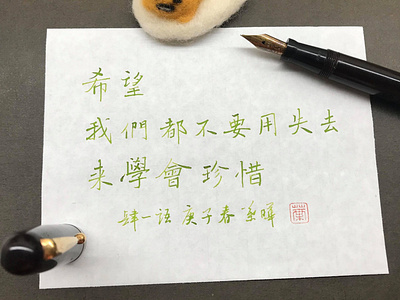 希望
我們都不要用失去
来學會珍惜
肆一语 庚子春